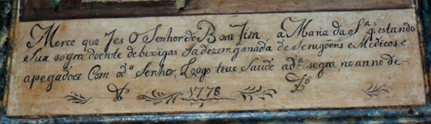 Merce que fes o Senhor do Bom Fim a Maria da S.ª q. estando
sua sogra doente de bexigas Ja dezemganada de Serugioens e Medicos e
apegadoce Com o d.º Senhor, Logo teve Saude a d.ª sogra no anno de
1778